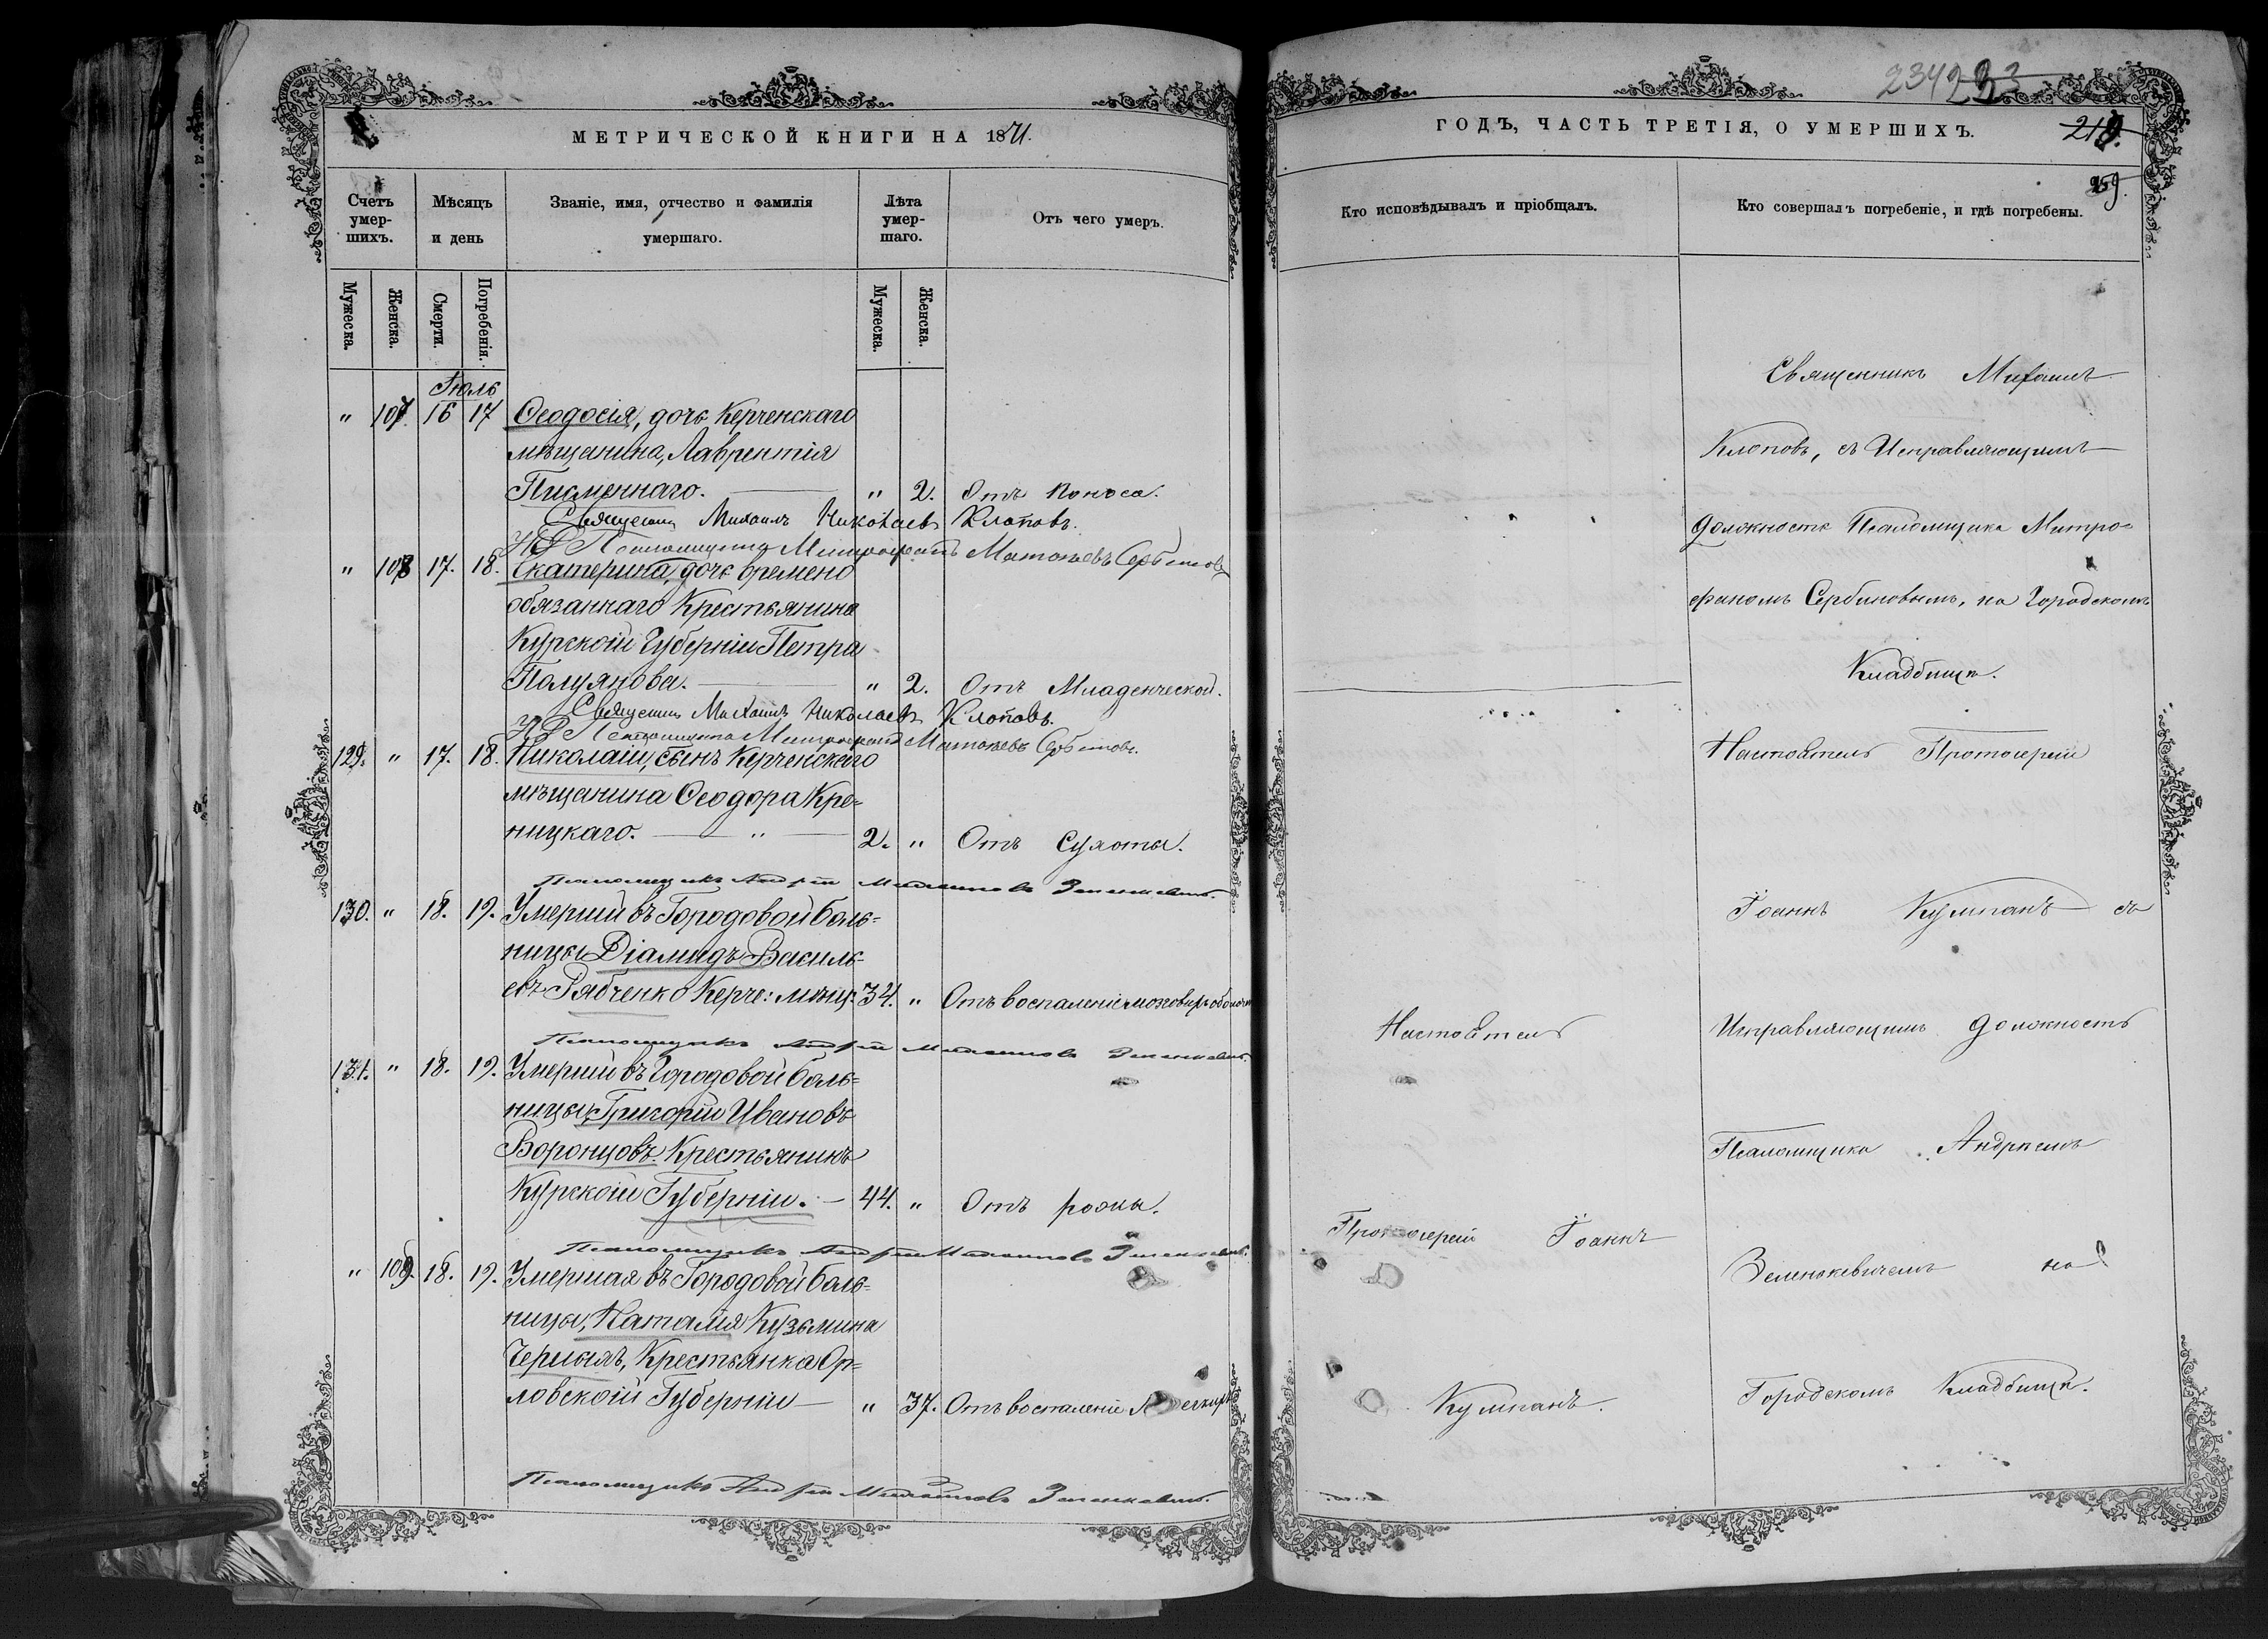 МЕТРИЧЕСКОЙ КНИГИ НА 1871.
Счетъ умер-шихъ.
Мѣсяцъ и день
Званіе, имя, отчество и фамилія умершаго.
Лѣта умер-шаго.
Отъ чего умеръ.
Мужеска.
Женска.
Смерти.
Погребенія.
Мужеска.
Женска.
Іюль
" 107. 16 17 Ѳеодосія, дочь Керченскаго
мѣщанина, Лаврентія
Писменнаго. " 2. Отъ поноса.
Священникъ Михаилъ Николаевъ Клоповъ.
И Д Псаломщика Митрофанъ Матвѣевъ Сербиновъ
" 108 17. 18. Екатерина, дочь времено
обязаннаго Крестьянина
Курской Губерніи Петра
Полуянова. " 2. Отъ Младенческой.
Священникъ Михаилъ Николаевъ Клоповъ.
И Д Псаломщика Митрофанъ Матвѣевъ Сербиновъ.
129. " 17. 18. Николай, сынъ Керченскаго
мѣщанина Ѳеодора Кре-
ницкаго. " 2. " Отъ Сухоты.
Псаломщикъ Андрей Зеленкевичъ.
130. " 18. 19. Умерший въ Городовой боль-
ницы Діамидъ Василь-
евъ Рябченко Керче: мѣщ. 34. " Отъ воспаленіе мозговыхъ оболоч
Псаломщикъ Андрей Зеленкевичъ.
131. " 18. 19. Умерший въ Городовой боль-
ницы, Григорій Ивановъ
Воронцовъ. Крестьянинъ
Курской Губерніи. 44. " Отъ рожы.
Псаломщикъ Андрей Зеленкевичъ.
" 109. 18. 19. Умершая въ Городовой боль-
ницы, Наталія Кузьмина
Крестьянка Ор-
ловской Губерніи " 37. Отъ воспаленіе
Псаломщикъ Андрей Зеленкевичъ.
234 233
ГОДЪ, ЧАСТЬ ТРЕТІЯ, О УМЕРШИХЪ.
219.
259.
Кто исповѣдывалъ и пріобщалъ.
Кто совершалъ погребеніе, и гдѣ погребены.
Священникъ Михаилъ
Клоповъ, съ Исправляющимъ
должность Псаломщика Митро-
фаномъ Сербиновымъ, на Городскомъ
Кладбищѣ.
Настоятель Протоіерей
Іоаннъ Кумпанъ съ
Исправляющимъ должность
Псаломщика Андреемъ
Зеленкевичемъ на
Городскомъ Кладбищѣ.
Настоятель
Протоіерей Іоаннъ
Кумпанъ.